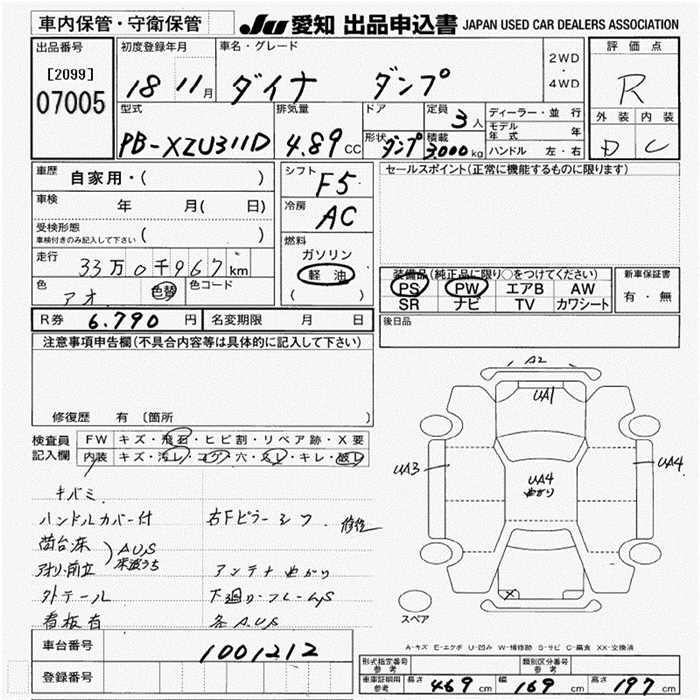 車内保管・守衛保管
JU 愛知 出品申込書 JAPAN USED CAR DEALERS ASSOCIATION
出品番号
[2099]
07005
初度登録年月
18 11月
車名・グレード
ダイナ ダンプ
2WD
・
4WD
評価点
R
外装 内装
D C
型式
PB-XZU311D
排気量
4.89 CC
ドア
形状 ダンプ
定員 3人
積載 3,000kg
ディーラー・並行
モデル年式 年
ハンドル 左・右
車歴
自家用・( )
車検
年 月( 日)
受検形態
車検付きのみ記入して下さい ( )
走行
33万0千967km
色
アオ 色替
色コード
R券 6.790円
名変期限 月 日
シフト
F5
冷房
AC
燃料
ガソリン
軽油
( )
セールスポイント(正常に機能するものに限ります)
装備品(純正品に限り○をつけてください)
PS PW エアB AW
SR ナビ TV カワシート
新車保証書
有・無
後日品
注意事項申告欄(不具合内容等は具体的に記入して下さい)
修復歴 有 〔箇所
検査員記入欄
FW キズ・飛石・ヒビ割・リペア跡・X要
内装 キズ・汚レ・コゲ穴・スレ・キレ・破レ
キバミ
ハンドルカバー付 右Fピラーシワ 修復
荷台床
アオリ、前立 AUS
床波うち
アンテナ曲がり
外テール 下廻り・フレームS
看板有 条A.US
A2
UA1
UA3
UA4
曲がり
UA4
X
スペア
A-キズ E-エクボ U-凹み W-補修跡 S-サビ C-腐食 XX-交換済
車台番号
1001212
登録番号
形式指定番号 参考
類別区分番号 参考
車庫証明用 参考 長さ 469cm 幅 169cm 高さ 197cm